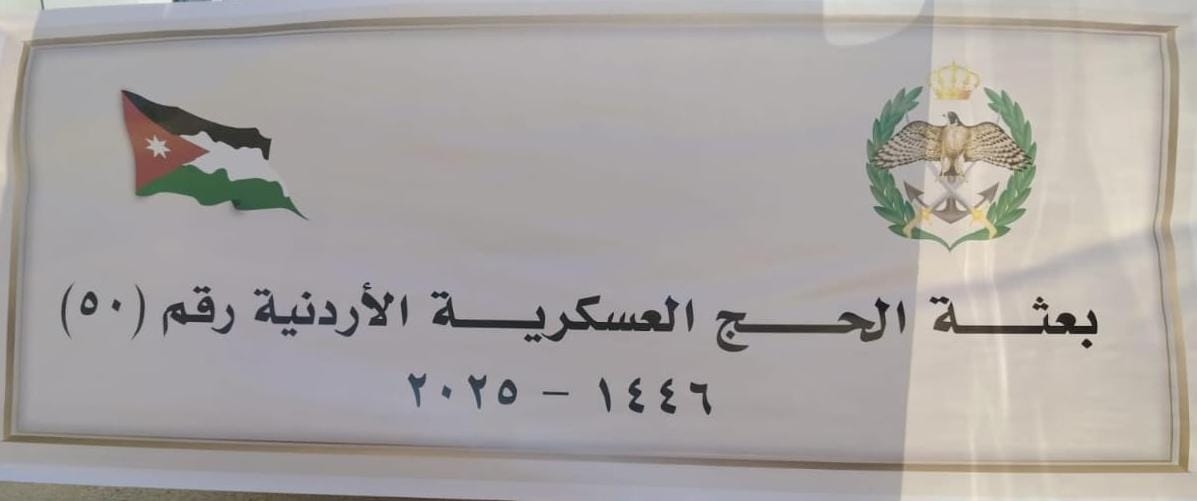 بعثة الحج العسكرية الأردنية رقم (٥٠)
١٤٤٦ - ٢٠٢٥